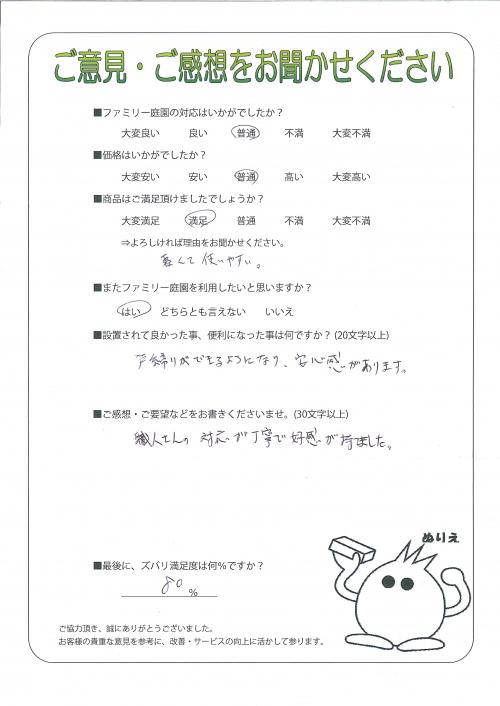 ご意見・ご感想をお聞かせください
■ファミリー庭園の対応はいかがでしたか？
大変良い 良い 普通 不満 大変不満
■価格はいかがでしたか？
大変安い 安い 普通 高い 大変高い
■商品はご満足頂けましたでしょうか？
大変満足 満足 普通 不満 大変不満
⇒よろしければ理由をお聞かせください。
軽くて使いやすい。
■またファミリー庭園を利用したいと思いますか？
はい どちらとも言えない いいえ
■設置されて良かった事、便利になった事は何ですか？(20文字以上)
戸締りができるようになり、安心感があります。
■ご感想・ご要望などをお書きくださいませ。(30文字以上)
職人さんの対応が丁寧で好感が持てました。
ぬりえ
■最後に、ズバリ満足度は何%ですか？
80 %
ご協力頂き、誠にありがとうございました。
お客様の貴重な意見を参考に、改善・サービスの向上に活かして参ります。